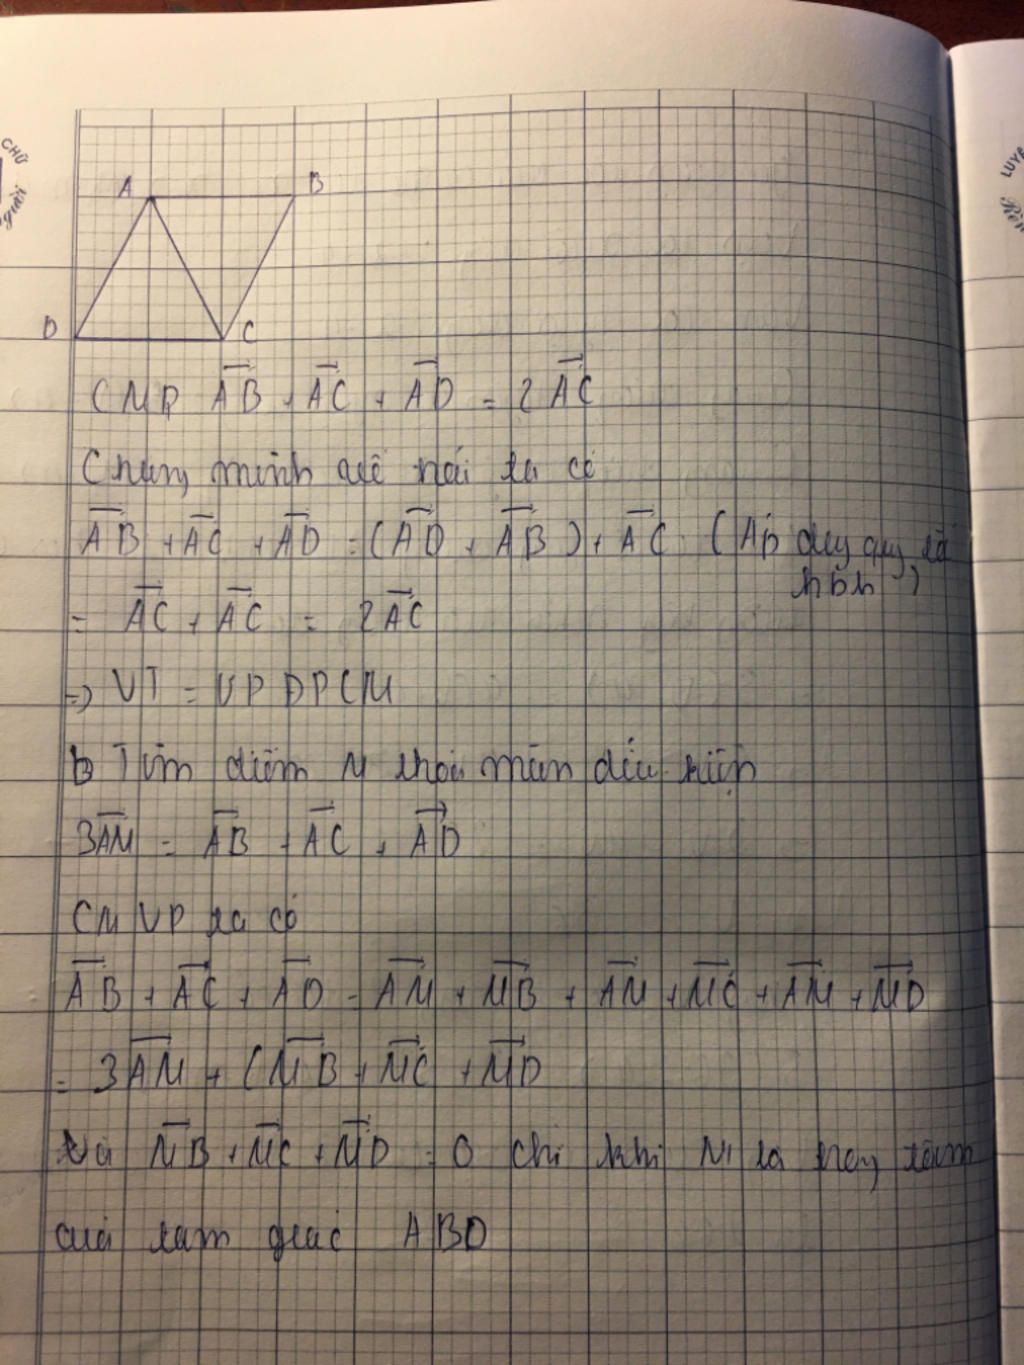 CHỮ
người
LUYỆ
A B
D C
CMR AB + AC + AD = 2AC
Chứng minh vế trái ta có
AB + AC + AD = (AD + AB) + AC (Áp dụng quy tắc
hbh)
= AC + AC = 2AC
=> VT = VP ĐPCM
b Tìm điểm M thỏa mãn điều kiện
3AM = AB + AC + AD
CM VP ta có
AB + AC + AD = AM + MB + AM + MC + AM + MD
= 3AM + (MB + MC + MD
Và MB + MC + MD = 0 chỉ khi M là trọng tâm
của tam giác ABD